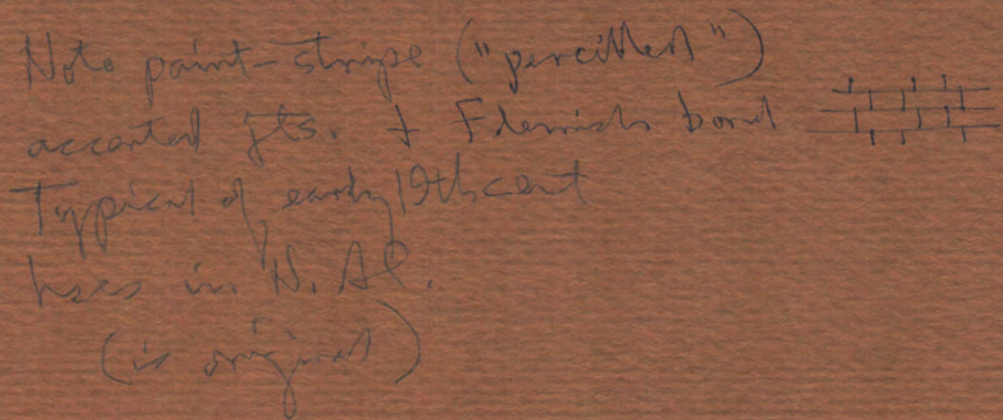 Note paint-stripe ("pencilled")
accented jts. + Flemish bond
Typical of early 19th cent
hses in N. Al.
(is original)